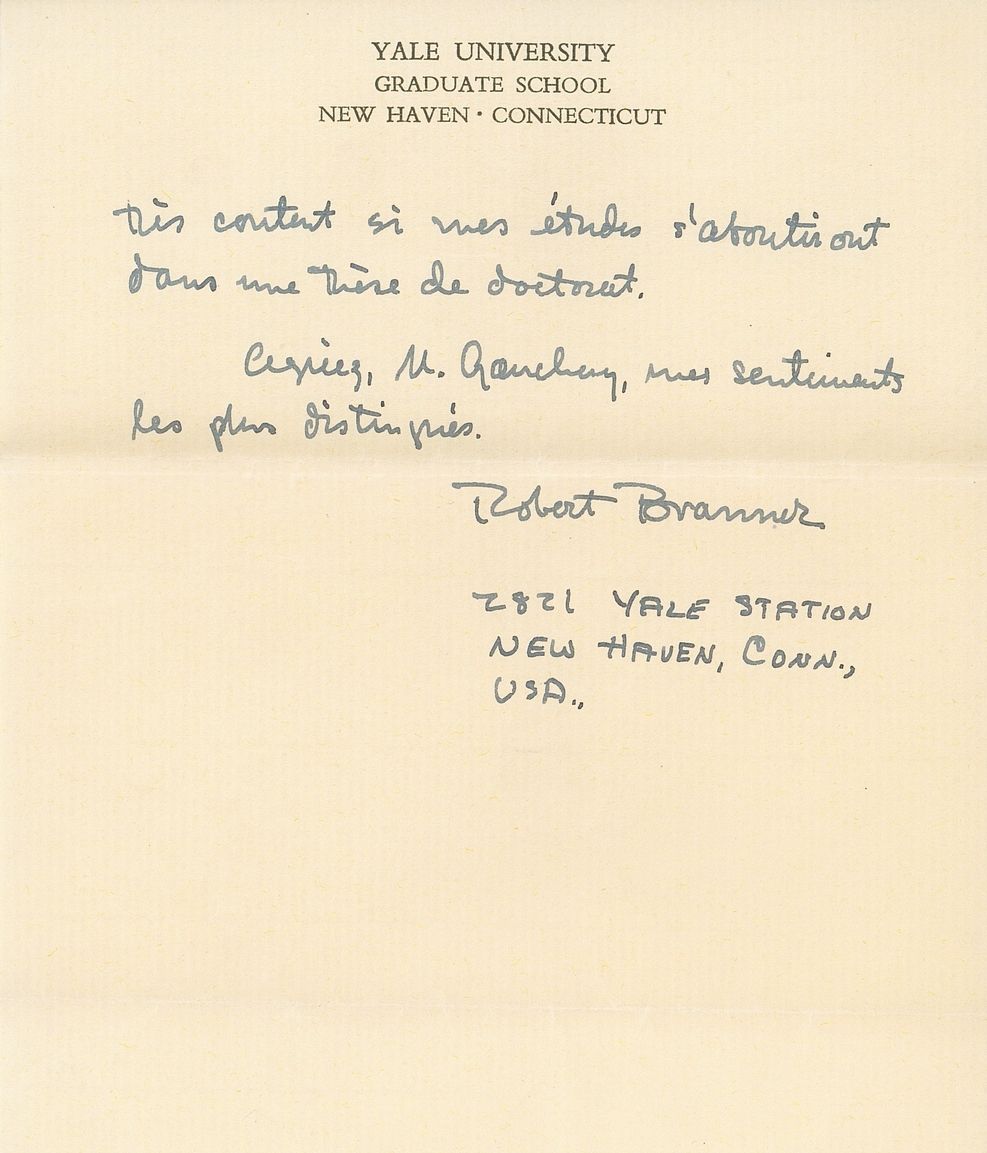 YALE UNIVERSITY
GRADUATE SCHOOL
NEW HAVEN · CONNECTICUT
très content si mes études s'aboutiront
dans une thèse de doctorat.
Agréez, M. Gauchery, mes sentiments
les plus distingués.
Robert Branner
2821 YALE STATION
NEW HAVEN, CONN.,
USA.,